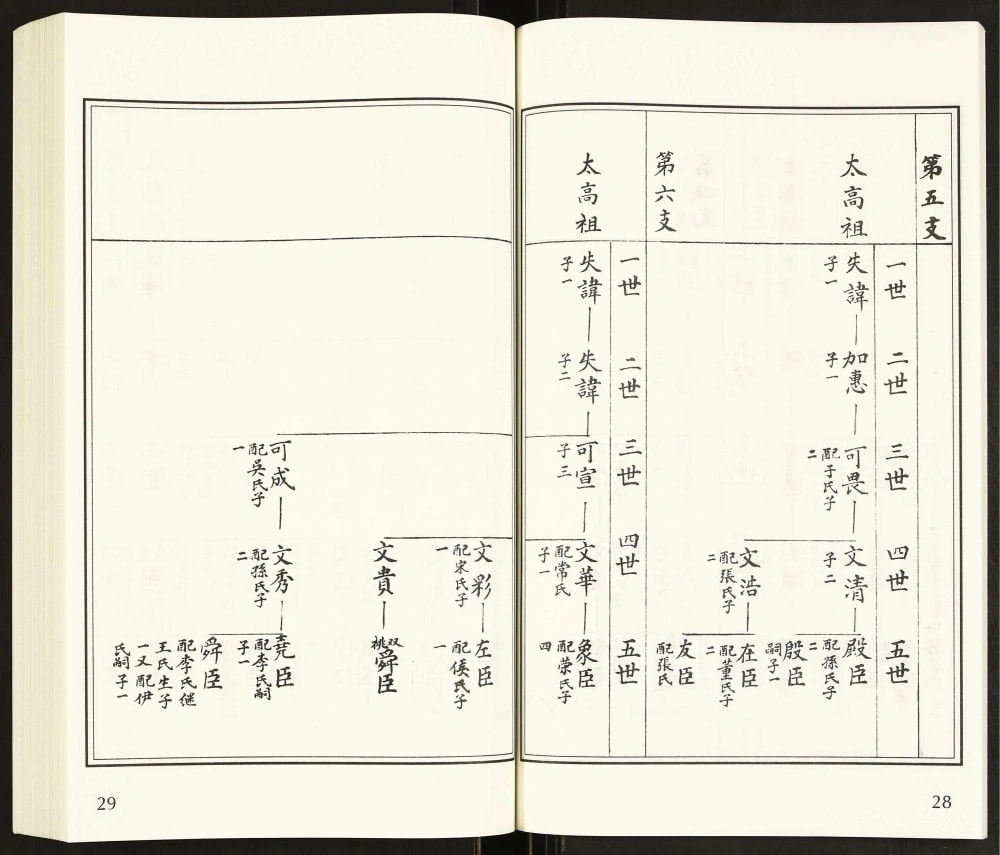 第五支
一世
二世
三世
四世
五世
太高祖
失諱
子一
加惠
子一
可畏
配于氏子
二
文清
子二
殿臣
配孫氏子
二
殷臣
嗣子一
文浩
配張氏子
二
在臣
配董氏子
二
友臣
配張氏
第六支
一世
二世
三世
四世
五世
太高祖
失諱
子一
失諱
子二
可宣
子三
文華
配常氏
子一
象臣
配榮氏子
四
28
文彩
配宋氏子
一
左臣
配侯氏子
一
文貴
双
桃
舜臣
可成
配吳氏子
一
文秀
配孫氏子
二
堯臣
配李氏嗣
子一
舜臣
配李氏继
王氏生子
一又配伊
氏嗣子一
29